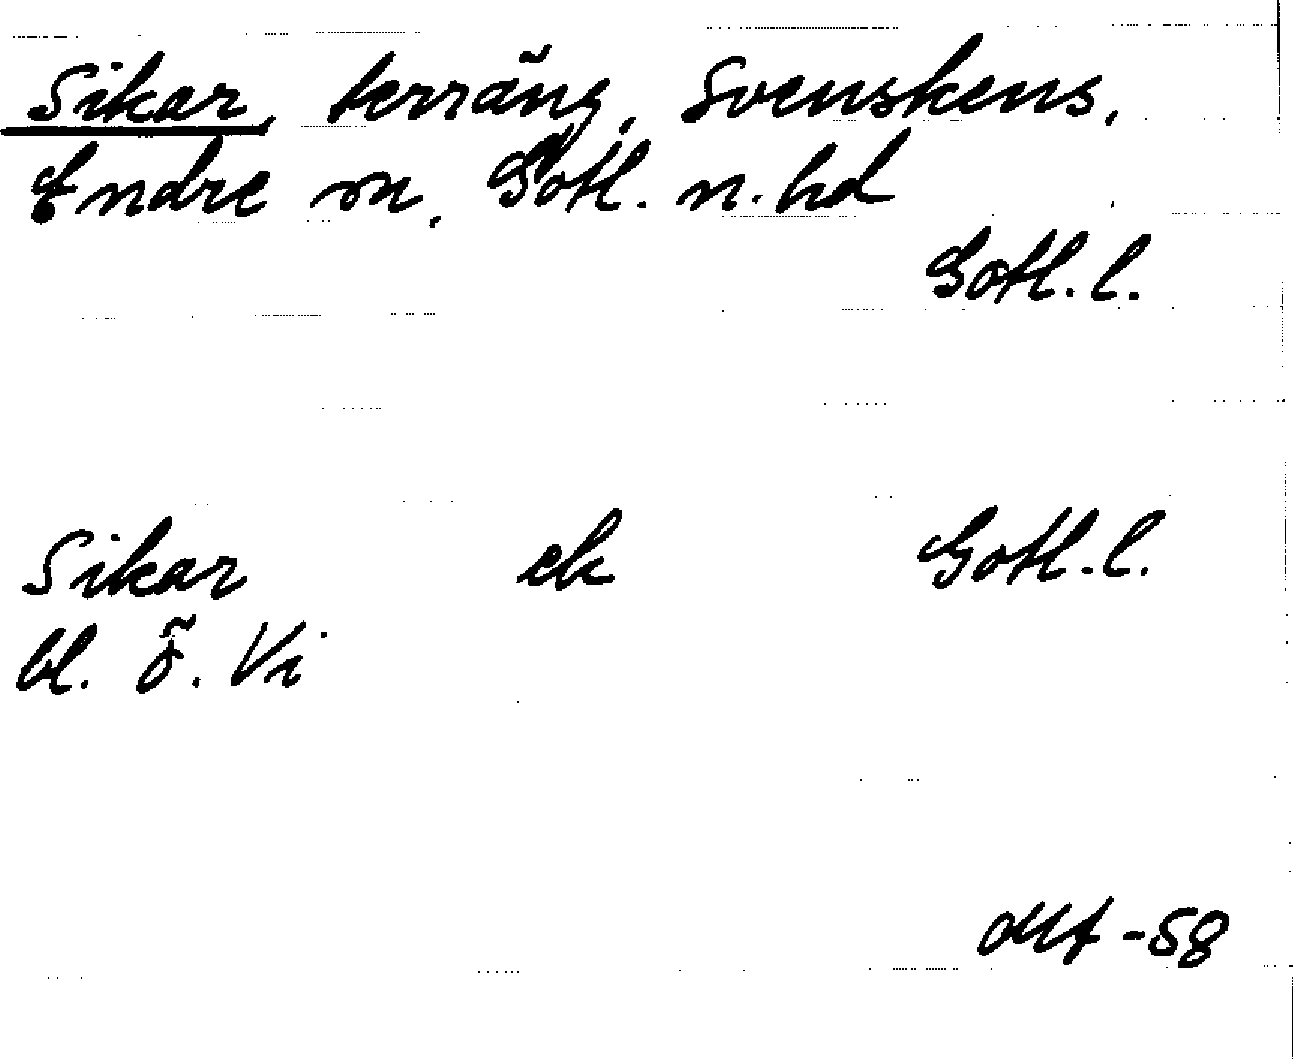 Sikar, terräng, Svenskens,
Endre sn, Gotl. n. hd
Gotl. l.
Sikar ek Gotl. l.
bl. ö. Vi
-58